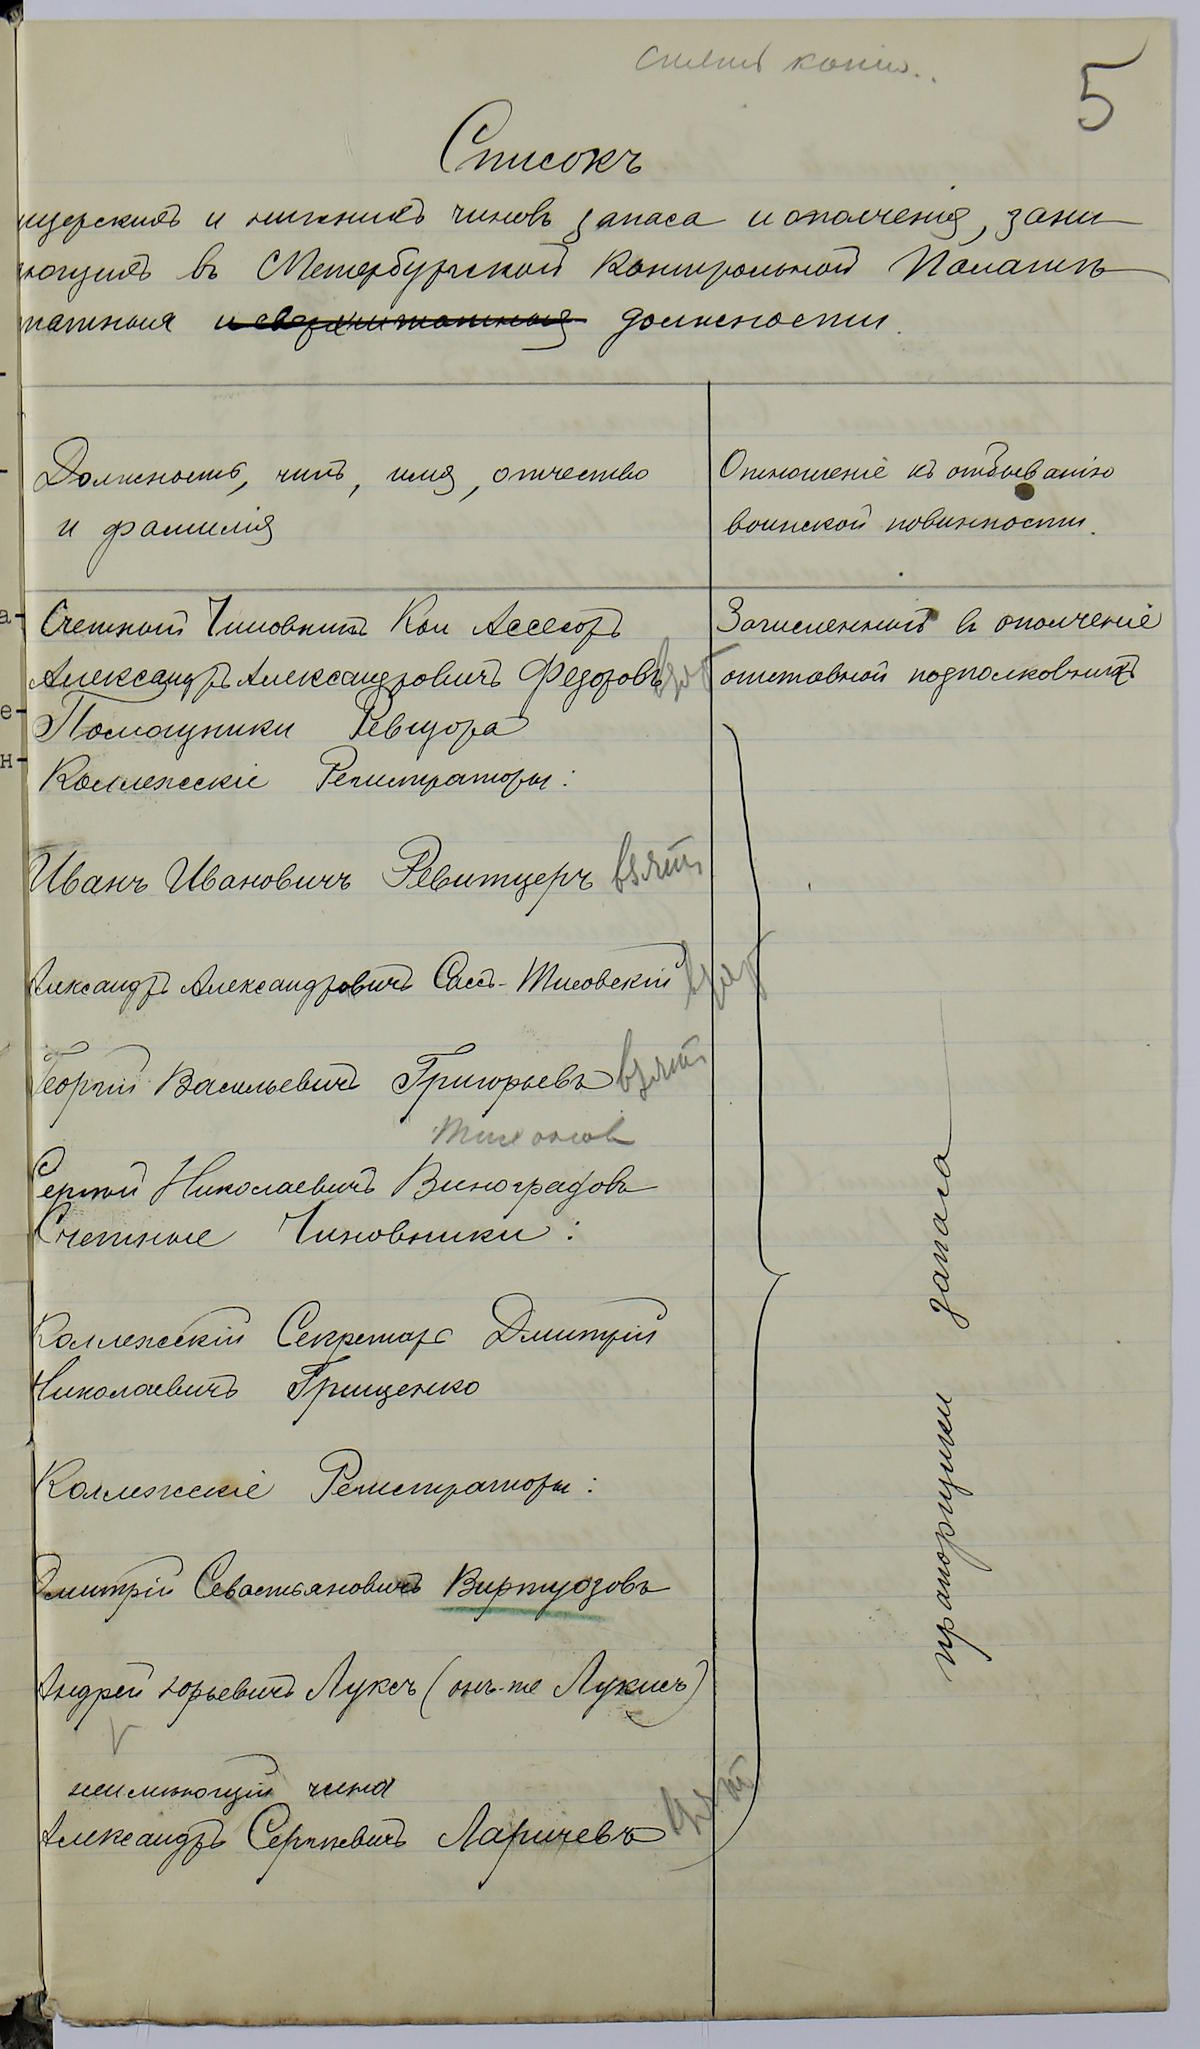 5
Списокъ
ицерскихъ и нижнихъ чиновъ запаса и ополченія, зани
ающихъ въ С Петербургской Контрольной Палатѣ
татныя и сверхштатныя должности.
Должность, чинъ, имя, отчество
и фамилія
Отношеніе къ отбыванію
воинской повинности.
Счетный Чиновникъ Кол Ассесоръ
Александръ Александровичъ Федоровъ взят
Зачисленный въ ополченіе
отставной подполковникъ
Помощники Ревизора
Коллежскіе Регистраторы:
Иванъ Ивановичъ Ревитцеръ взятъ
Александръ Александровичъ Сасъ-Тисовскій взят
Георгій Васильевичъ Григорьевъ взятъ
Сергѣй Николаевичъ Виноградовъ
Счетные Чиновники:
Коллежскій Секретарь Дмитрій
Николаевичъ Грищенко
Коллежскіе Регистраторы:
Дмитрій Севастьяновичъ Виртуозовъ
Андрей Юрьевичъ Луксъ (онъ-же Лукисъ)
неимѣющій чина
Александръ Сергѣевичъ Ларичевъ взят
прапорщики запаса